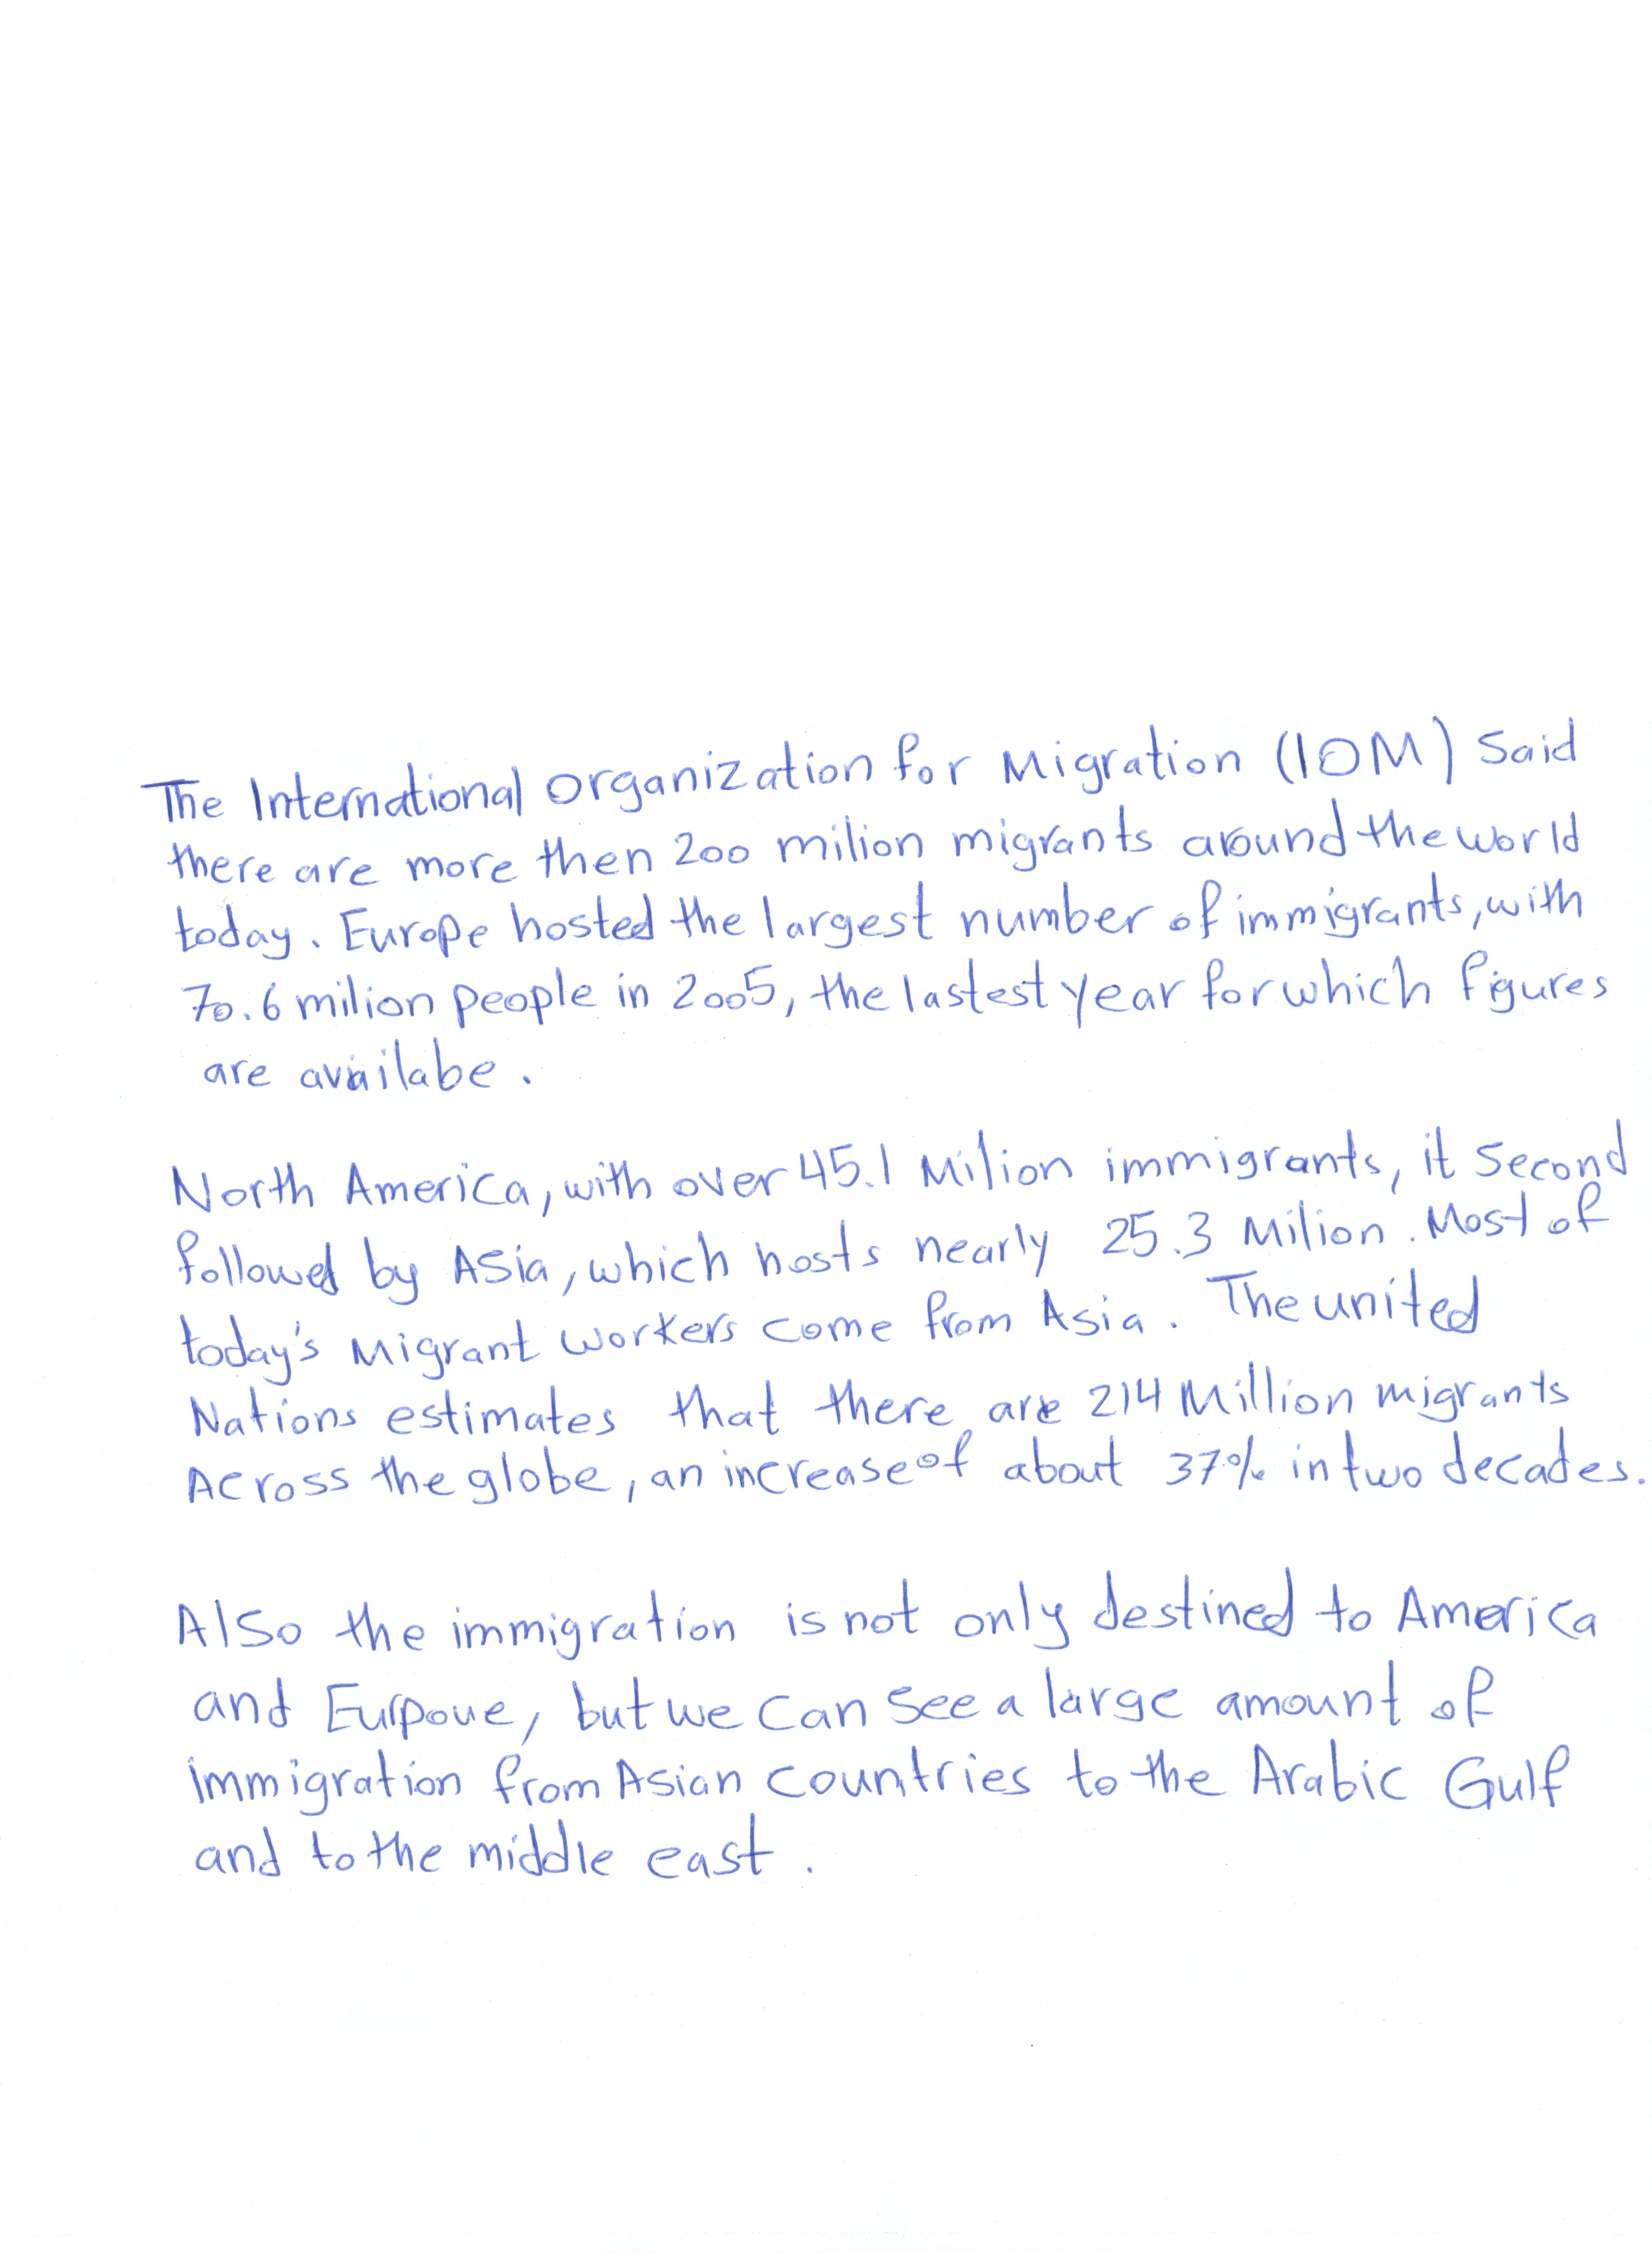 The International Organization for Migration (IOM) Said
there are more then 200 milion migrants around the world
today. Europe hosted the largest number of immigrants, with
70.6 milion people in 2005, the lastest year for which figures
are availabe.
North America, with over 45.1 Milion immigrants, it Second
followed by Asia, which hosts nearly 25.3 Milion. Most of
today's Migrant workers come from Asia. The united
Nations estimates that there are 214 Million migrants
Across the globe, an increase of about 37% in two decades.
Also the immigration is not only destined to America
and Eurpoue, but we can see a large amount of
immigration from Asian countries to the Arabic Gulf
and to the middle east.